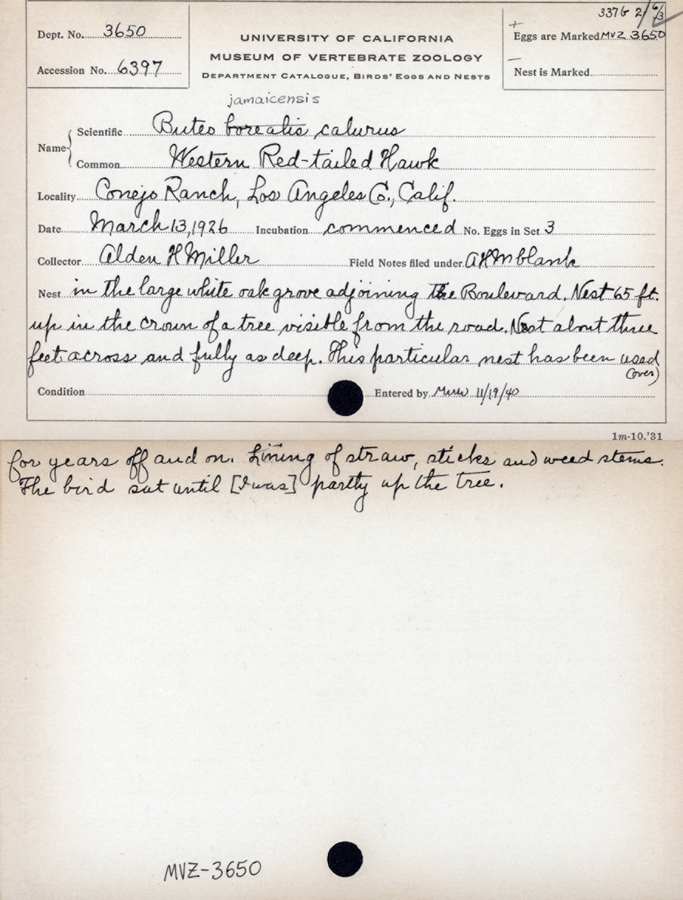 337b 2/
Dept. No. 3650
UNIVERSITY OF CALIFORNIA
MUSEUM OF VERTEBRATE ZOOLOGY
DEPARTMENT CATALOGUE, BIRDS' EGGS AND NESTS
+
Eggs are Marked MVZ 3650
Accession No. 6397
–
Nest is Marked
jamaicensis
Name
Scientific Buteo borealis calurus
Common Western Red-tailed Hawk
Locality Conejo Ranch, Los Angeles Co., Calif.
Date March 13, 1926 Incubation commenced No. Eggs in Set 3
Collector Alden H Miller Field Notes filed under AHM blank
Nest in the large white oak grove adjoining the Boulevard. Nest 65 ft.
up in the crown of a tree visible from the road. Nest about three
feet across and fully as deep. This particular nest has been used
(over)
Condition Entered by 11/19/40
1m-10.'31
for years off and on. Lining of straw, sticks and weed stems.
The bird sat until [I was] partly up the tree.
MVZ-3650